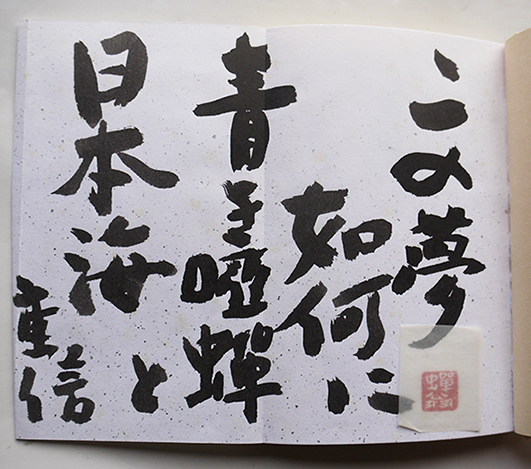 この夢
如何に
青き啞蝉
日本海と
重信
蟬翁